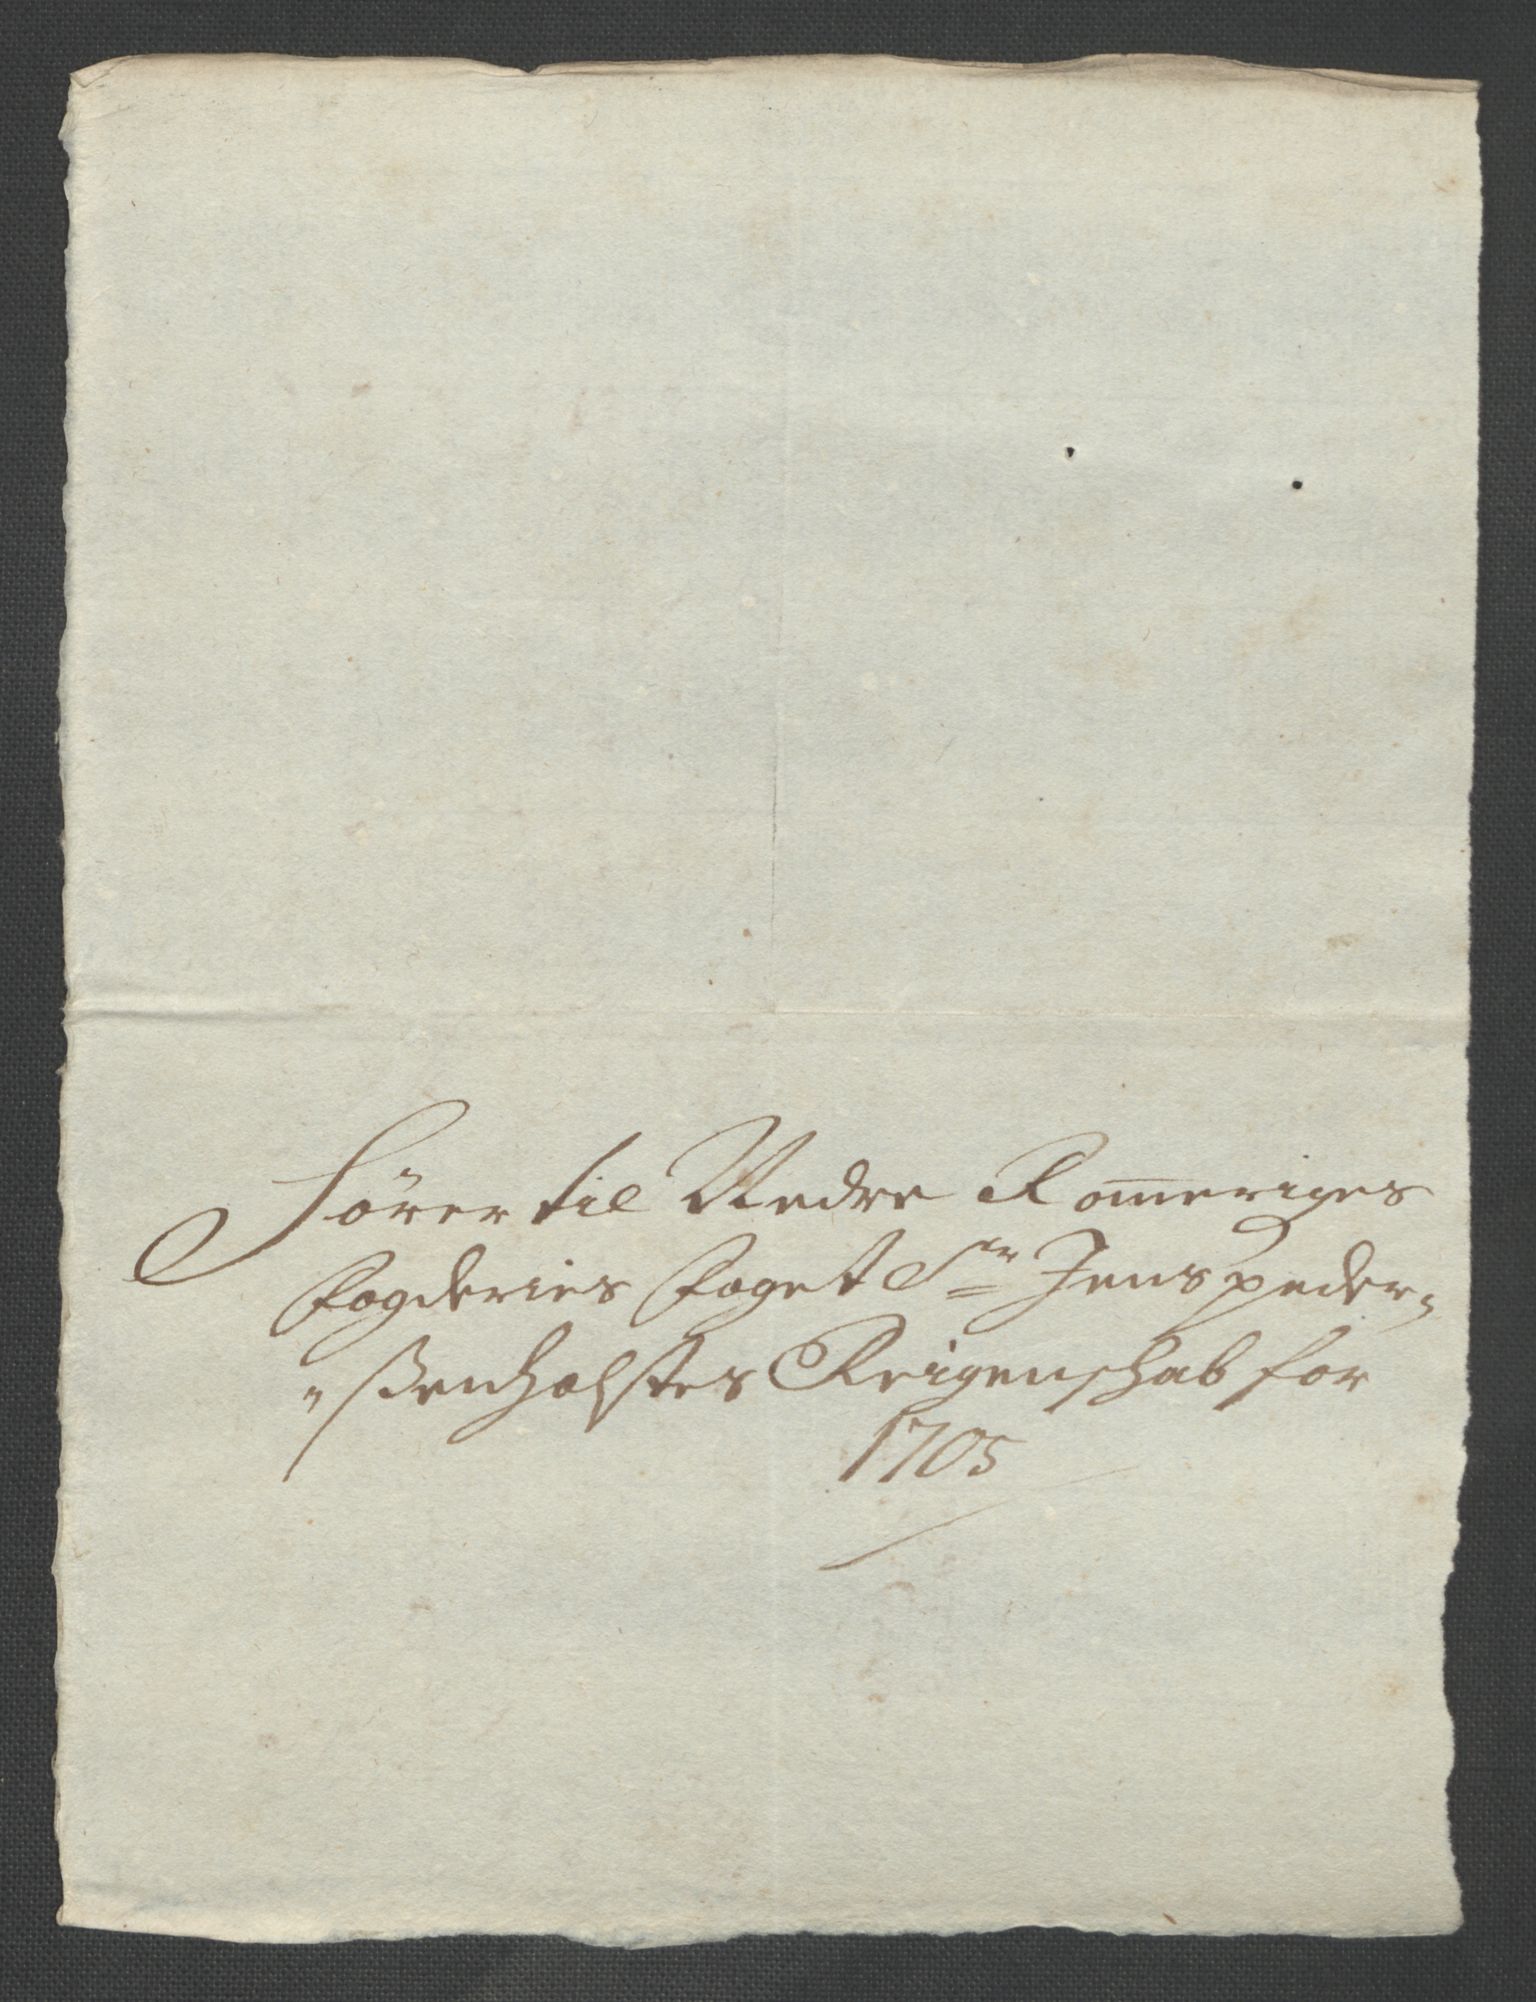 Hörer til Nedre Romeriges
fogderies foget Sr Jens peder-
-ßen holstes Reigenschab for
1705